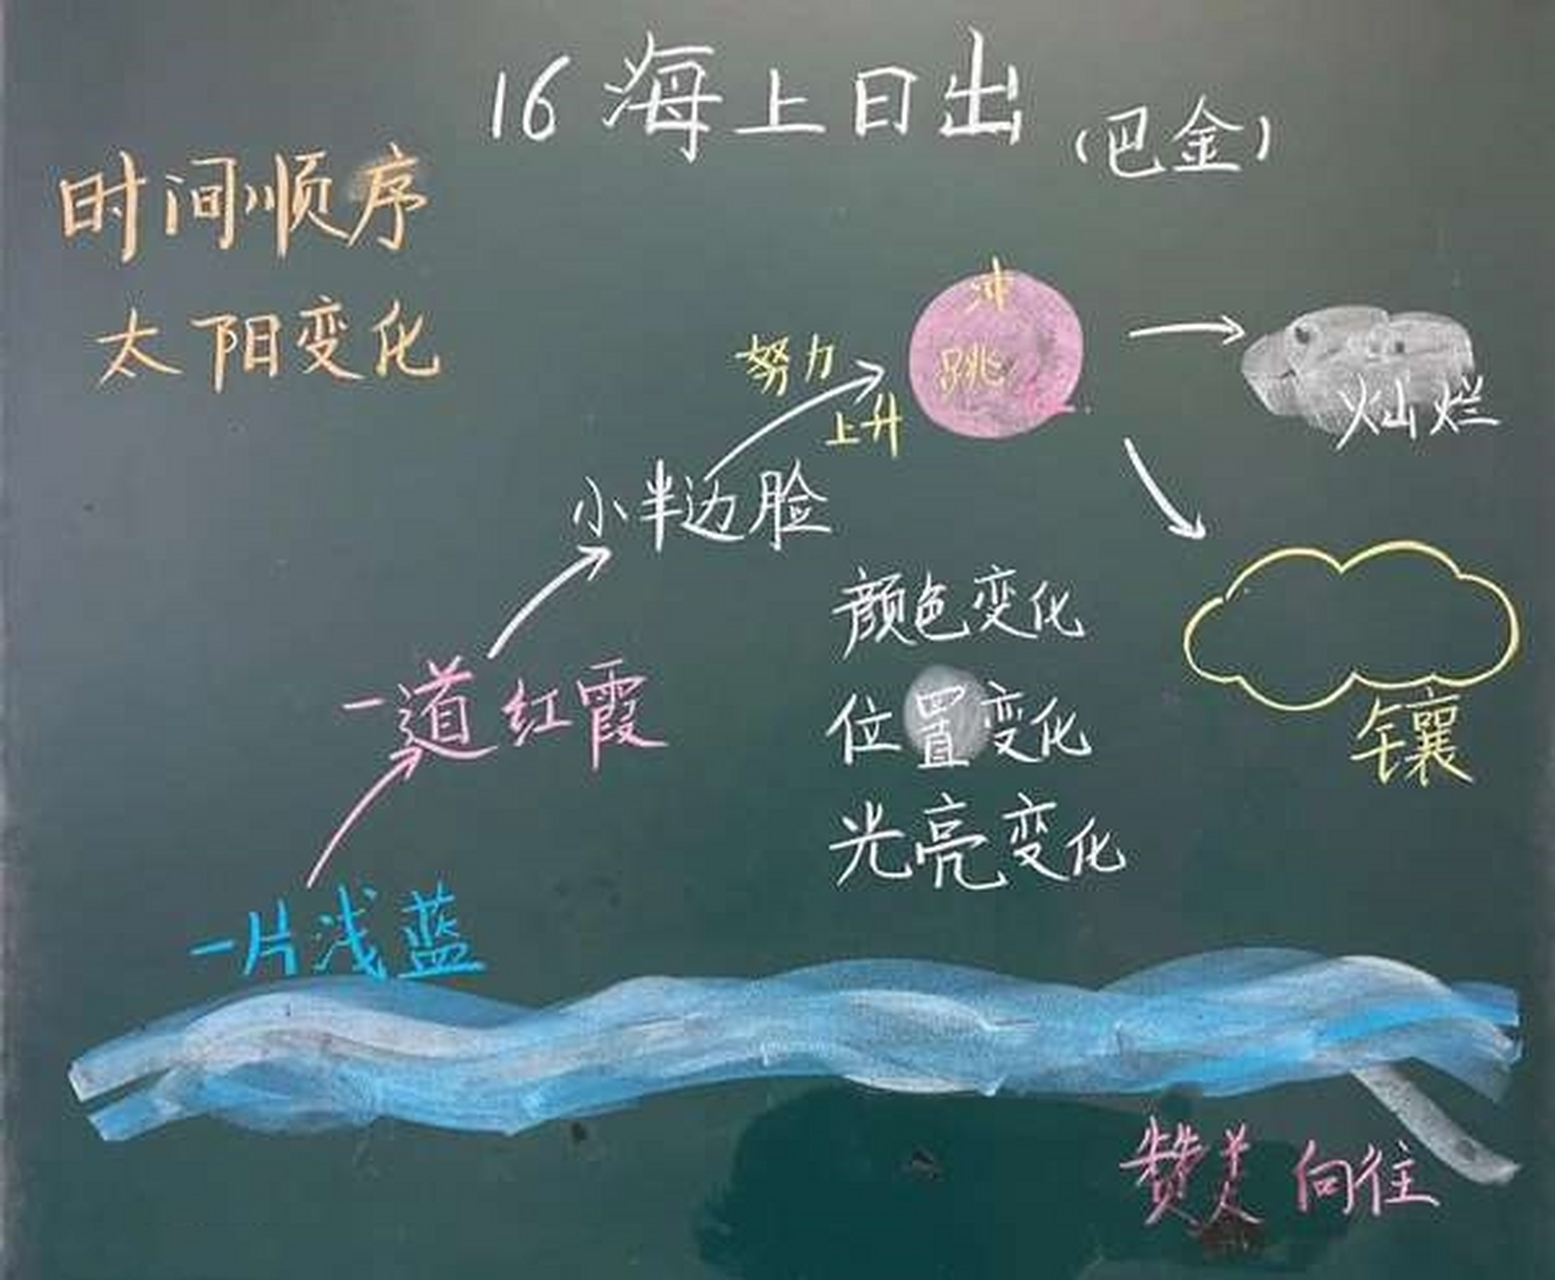 16 海上日出
(巴金)
时间顺序
太阳变化
冲
跳
努力
上升
灿烂
小半边脸
颜色变化
一道红霞
位置变化
镶
光亮变化
一片浅蓝
赞美 向往